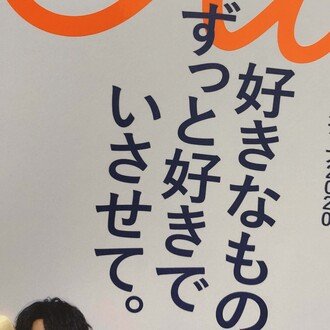 好きなもの
ずっと好きで
いさせて。